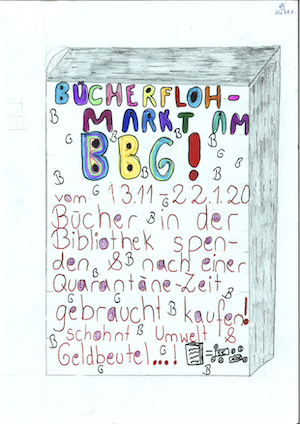 BÜCHERFLOH-
MARKT AM
BBG!
vom 13.11-22.1.20
Bücher in der
Bibliothek spen-
den & nach einer
Quarantäne-Zeit
gebraucht kaufen!
schohnt Umwelt &
Geldbeutel...!